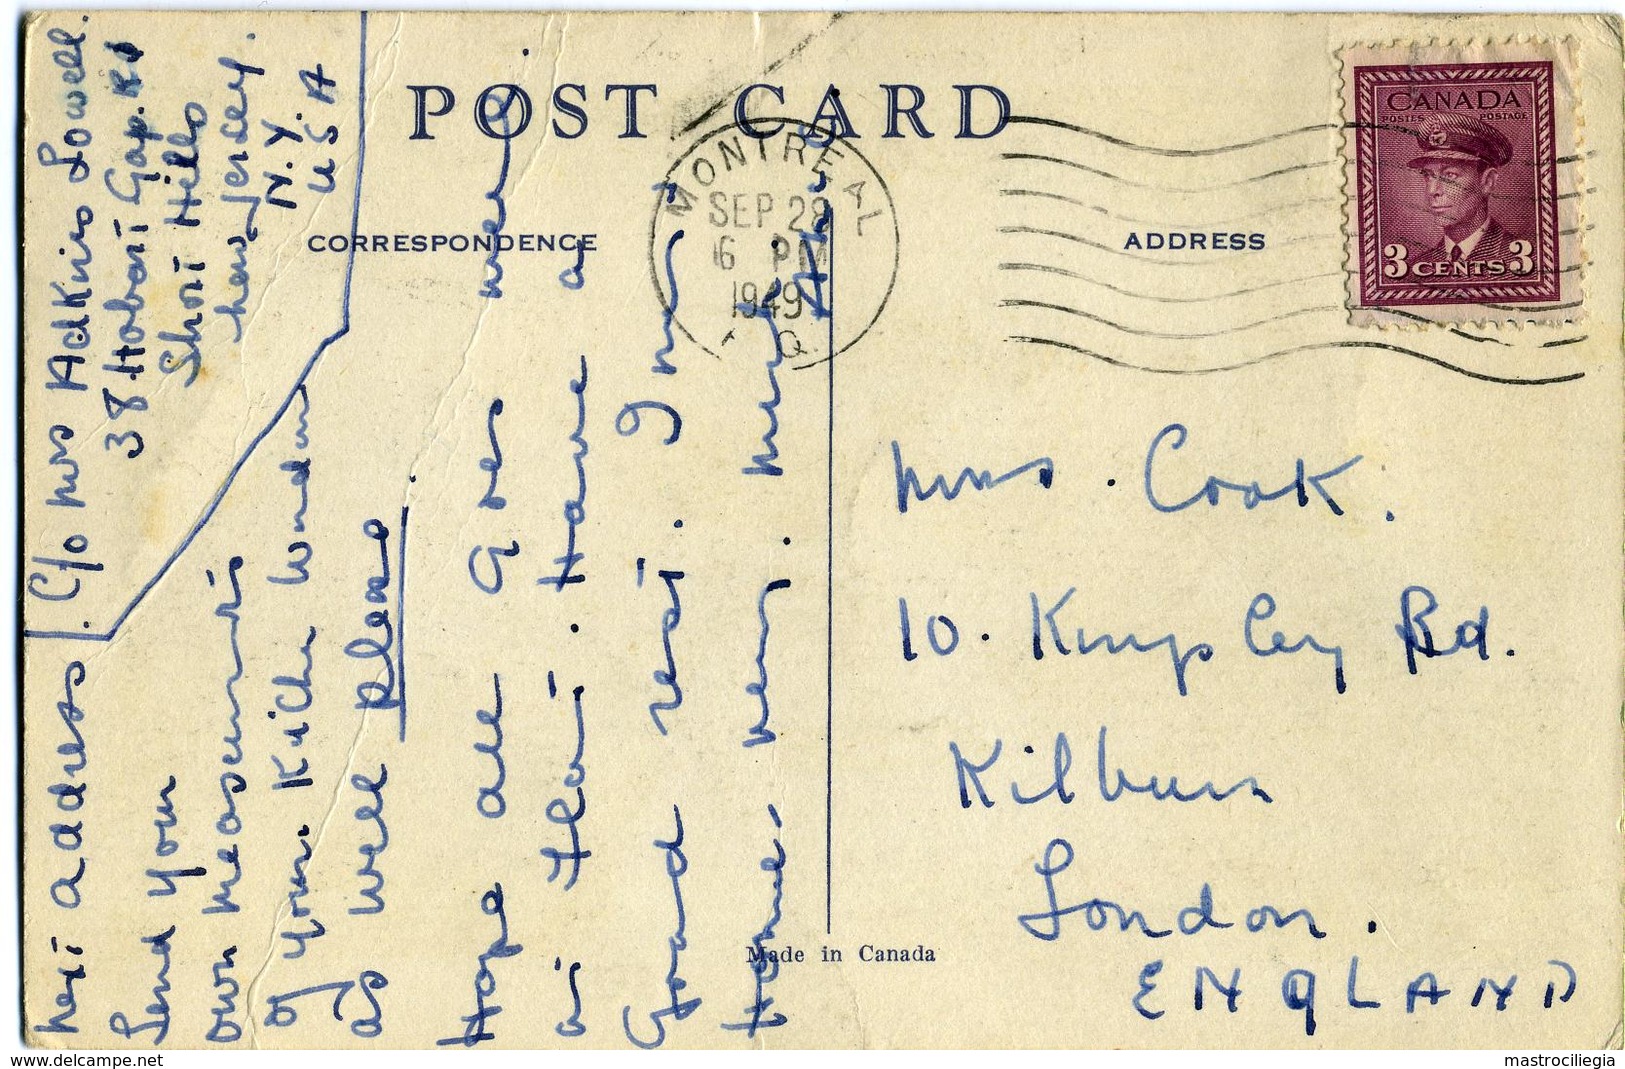 POST CARD
CORRESPONDENCE
ADDRESS
MONTREAL
SEP 28
6 PM
1949
P.Q.
CANADA
POSTES POSTAGE
3 CENTS 3
next address C/o Mrs Adkins Lowell.
38 Hobart Gap. Rd
Short Hills
new Jersey.
N.Y.
U S A
Send your
own measurements
of your Kitchen window
as well please.
Hope all goes well
at Flat. Have a
Good rest. I miss
Home. very. much.
Mrs. Cook.
10. Kingsley Rd.
Kilburn
London.
ENGLAND
Made in Canada
www.delcampe.net
mastrociliegia